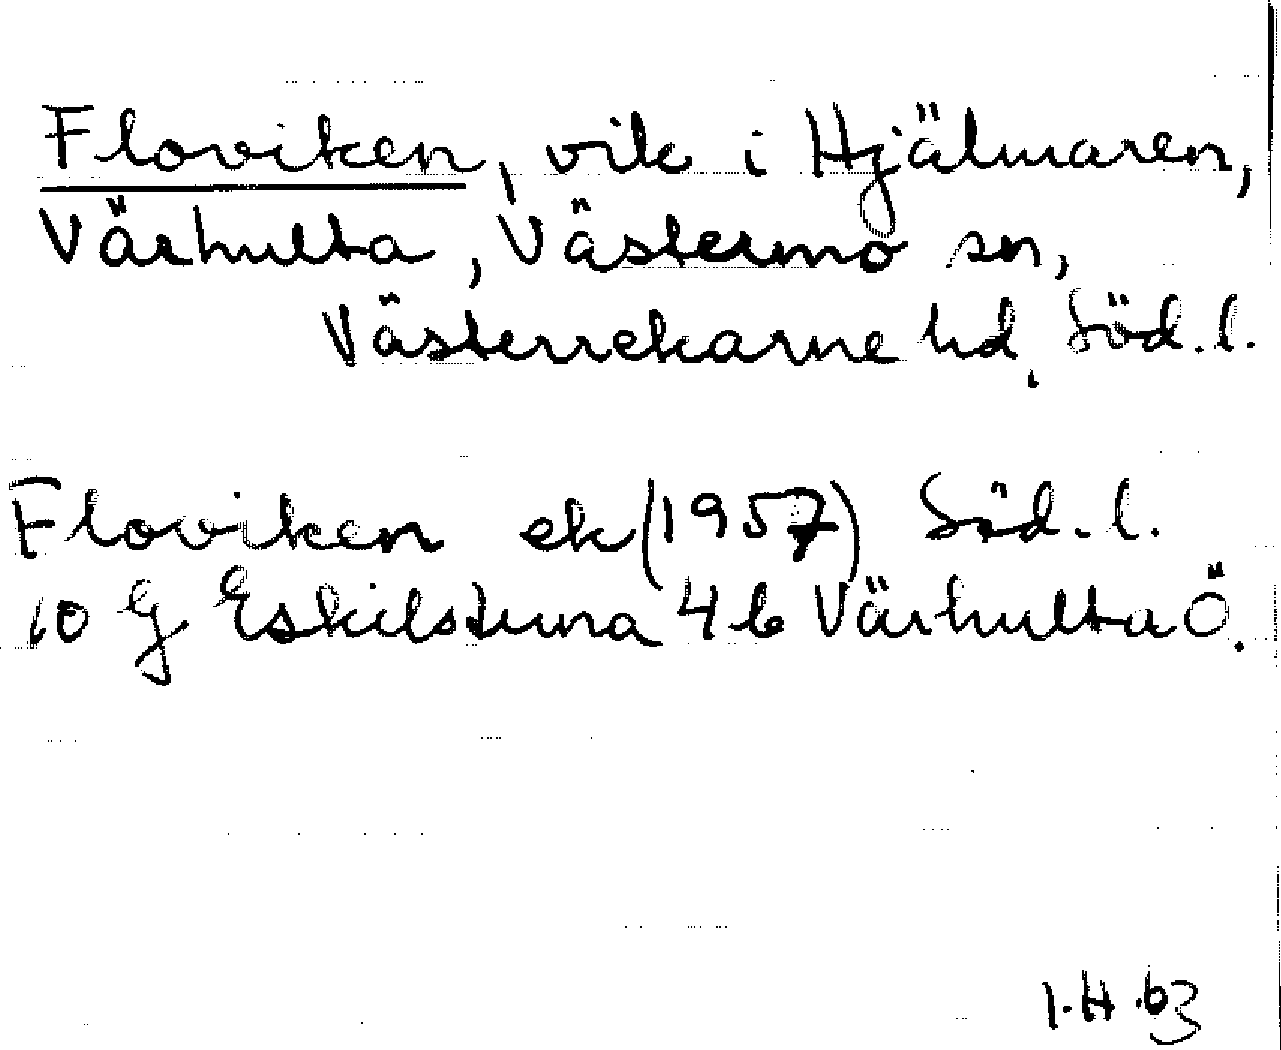 Floviken, vik i Hjälmaren,
Värhulta, Västermo sn,
Västerrekarne hd, Söd. l.
Floviken ek (1957) Söd. l.
10 G Eskilstuna 4 b Värhulta Ö.
I. H. 63